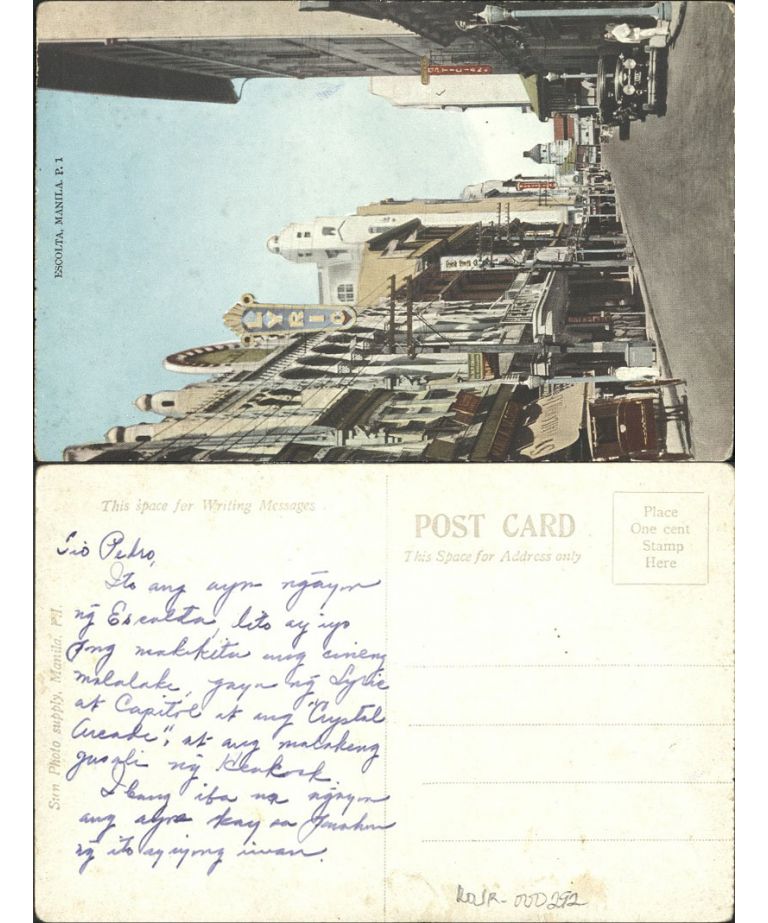 ESCOLTA, MANILA. P. 1
LYRIC
This space for Writing Messages
POST CARD
This Space for Address only
Place
One cent
Stamp
Here
Sun Photo supply, Manila, P.I.
Tio Pedro,
Ito ang ayos ngayon
ng Escolta, dito ay iyo
ong makikita ang cineng
malalake, gaya ng Lyric
at Capitol at ang "Crystal
Arcade", at ang malakeng
gusali ng
Ibang iba na ngayon
ang ayos kay sa
ng ito ay iyong iwan.
ROJR-000292